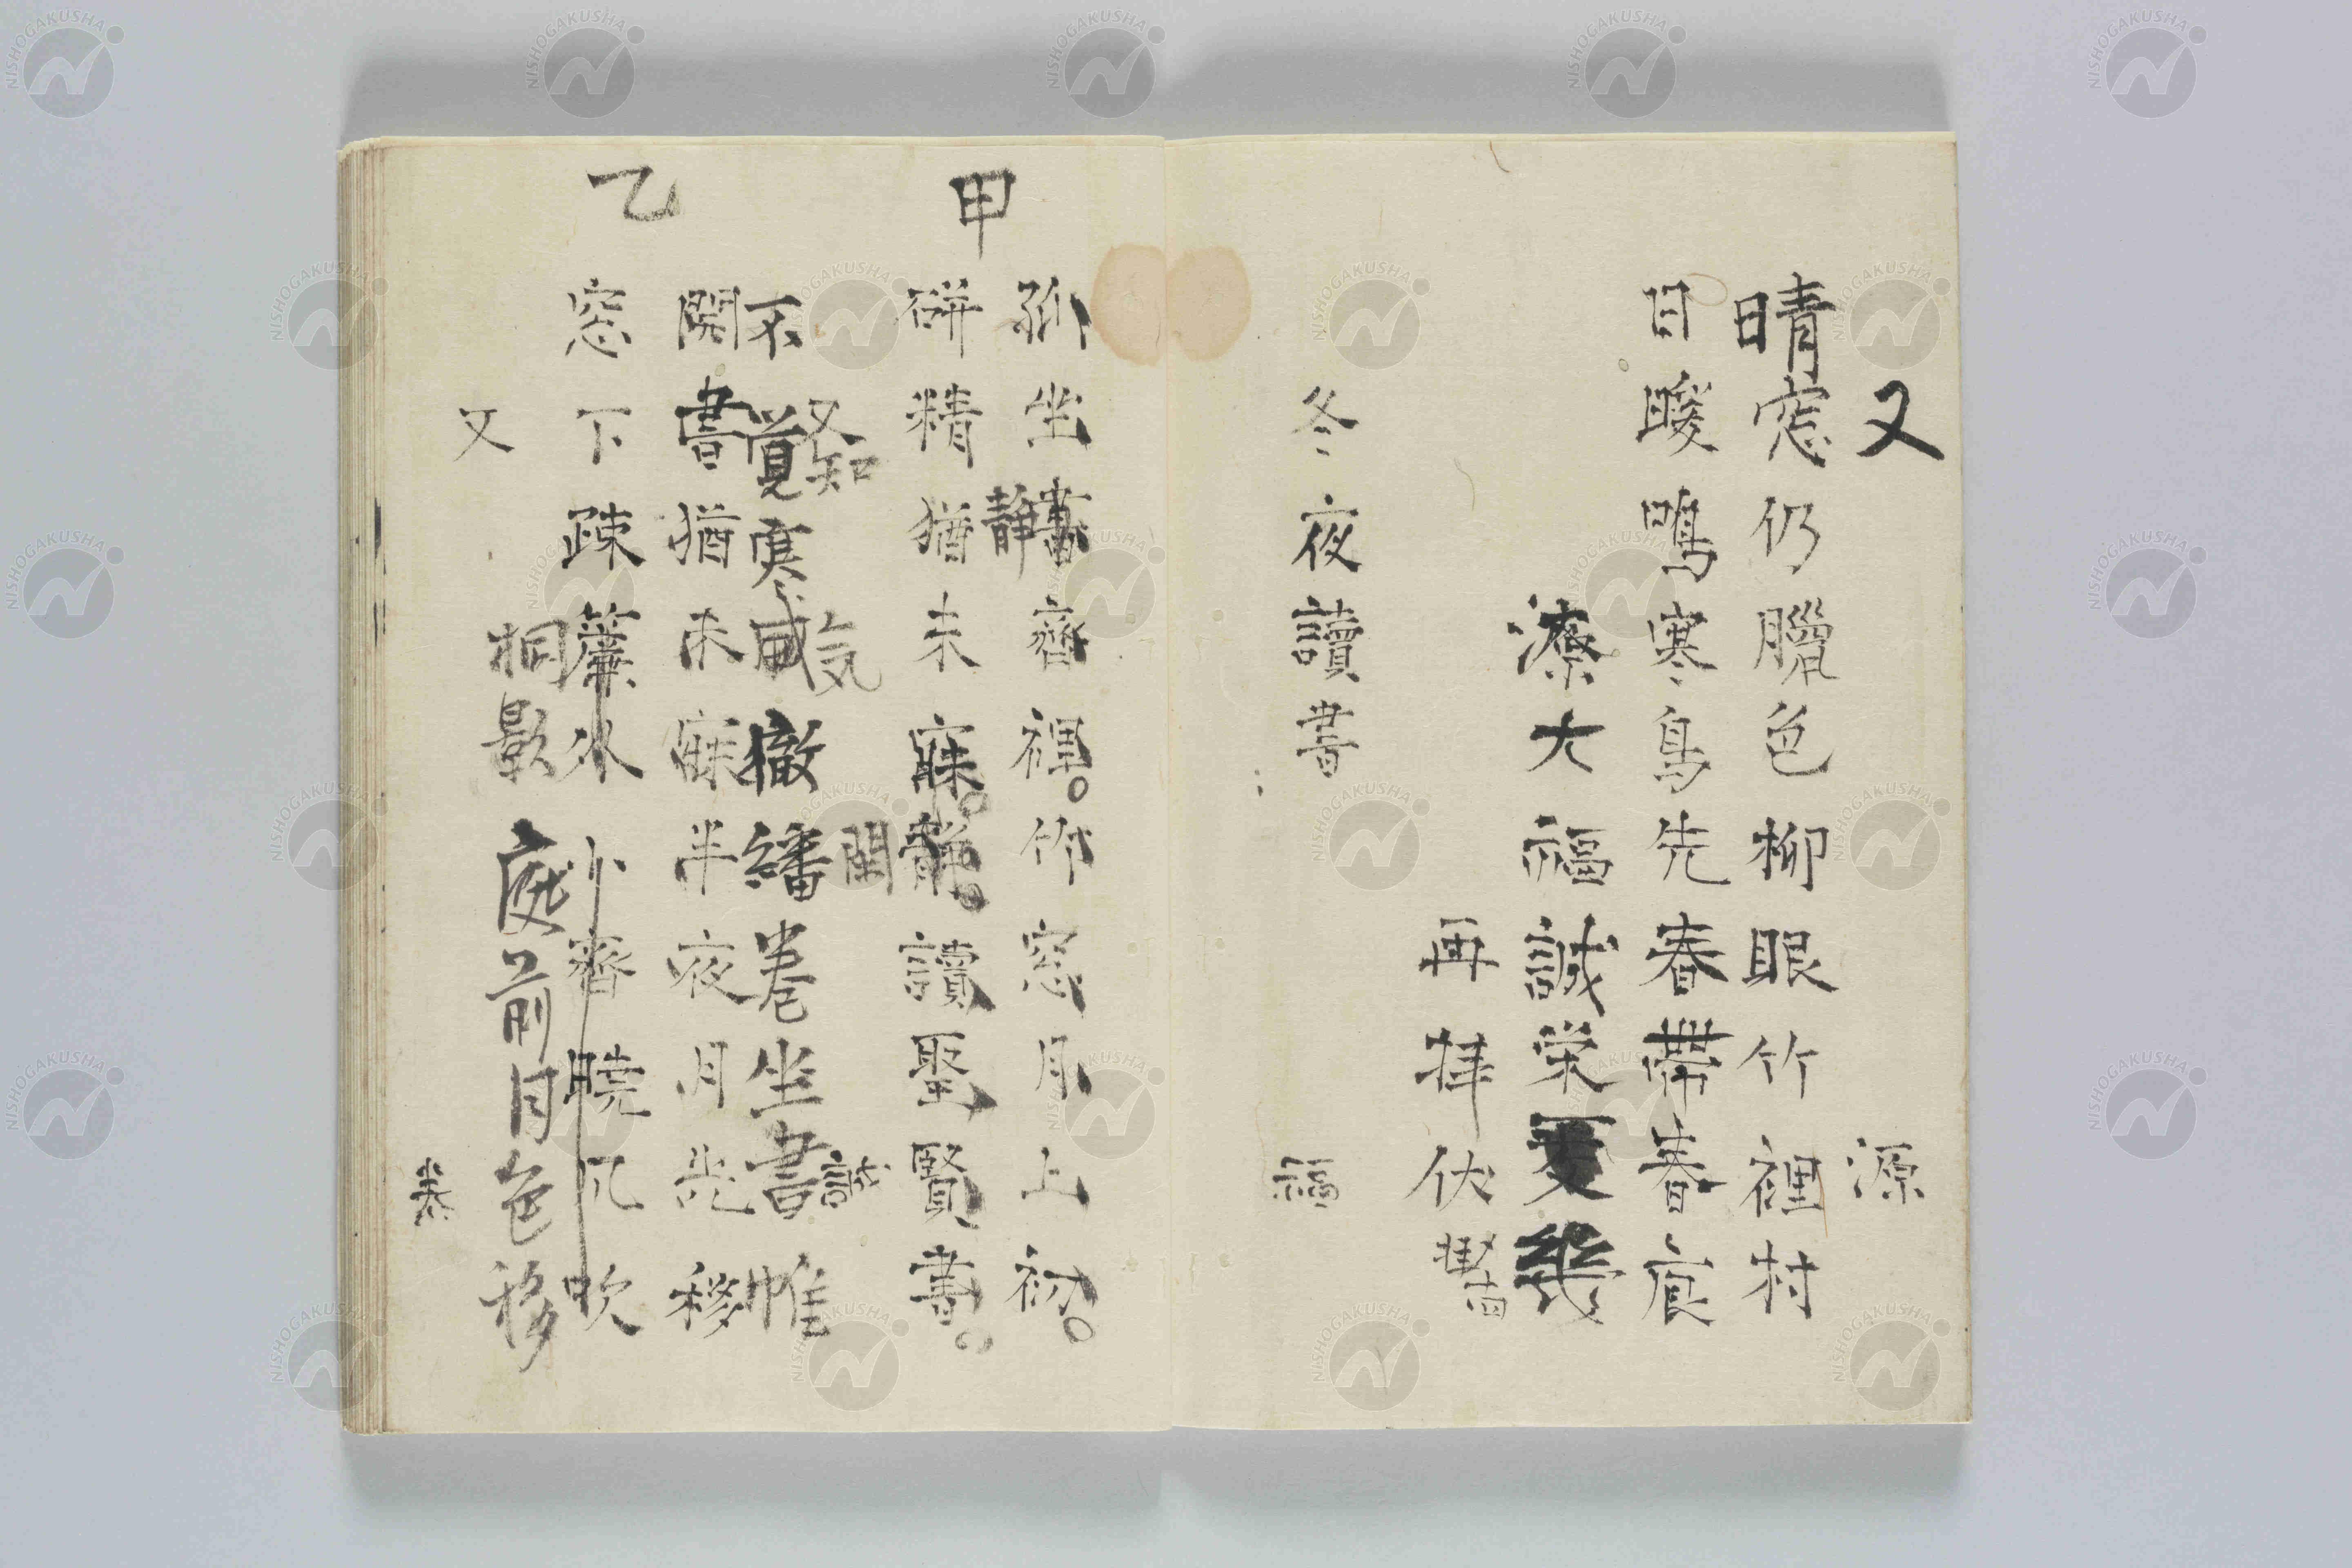 又 源
晴窓仍臘色柳眼竹裡村
日暖鳴寒鳥先春帶春痕
療大福誠栄
再拝伏
冬夜讀書 福
甲
孤坐書齊裡。竹窓月上初。
静
研精猶未寐。静讀聖賢書。
閑
乙
又知 気 誠
不覚寒威撤繙巻坐書帷
関書猶未寐半夜月光移
窓下疎簾氷小齊暁几吹
桐影庭前月色移
又
NISHOGAKUSHA